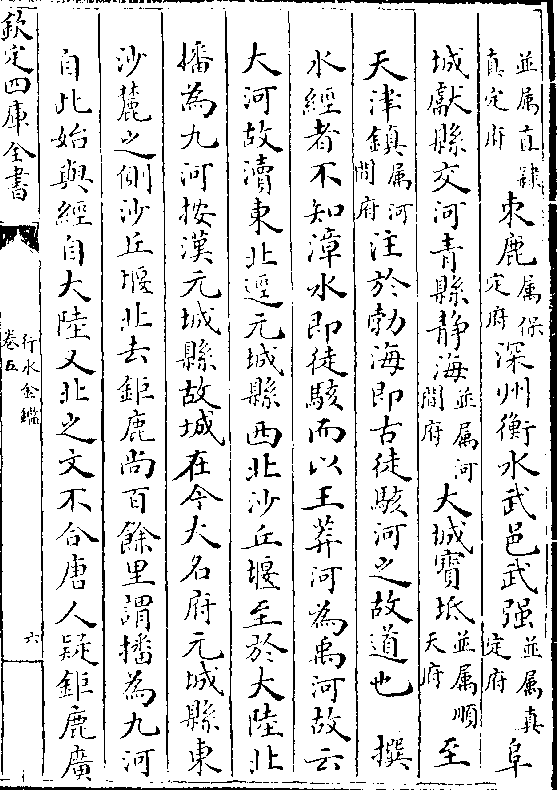 並属直隸真定府束鹿属保定府深州衡水武邑武强並属真定府阜
城獻縣交河青縣静海並属河間府大城寳坻並属順天府至
天津鎮属河間府注於勃海即古徒駭河之故道也撰
水經者不知漳水即徒駭而以王莽河為禹河故云
大河故瀆東北逕元城縣西北沙丘堰至於大陸北
播為九河按漢元城縣故城在今大名府元城縣東
沙麓之側沙丘堰北去鉅鹿尚百餘里謂播為九河
自此始與經自大陸又北之文不合唐人疑鉅鹿廣
欽定四庫全書
行水金鑑
卷五
六